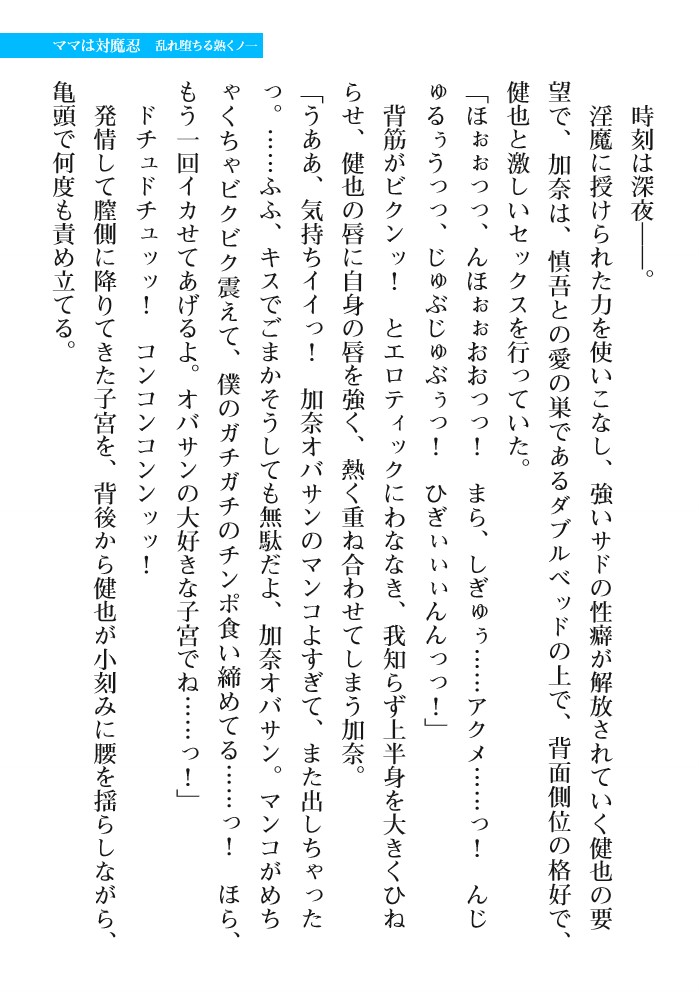 ママは対魔忍　乱れ堕ちる熟くノ一
時刻は深夜――。
淫魔に授けられた力を使いこなし、強いサドの性癖が解放されていく健也の要
望で、加奈は、慎吾との愛の巣であるダブルベッドの上で、背面側位の格好で、
健也と激しいセックスを行っていた。
「ほぉぉっっ、んほぉぉおおっっ！　まら、しぎゅぅ……アクメ……っ！　んじ
ゅるぅうっっ、じゅぶじゅぶぅっ！　ひぎぃぃぃんんっっ！」
背筋がビクンッ！　とエロティックにわななき、我知らず上半身を大きくひね
らせ、健也の唇に自身の唇を強く、熱く重ね合わせてしまう加奈。
「うああ、気持ちイイっ！　加奈オバサンのマンコよすぎて、また出しちゃった
っ。……ふふ、キスでごまかそうしても無駄だよ、加奈オバサン。マンコがめち
ゃくちゃビクビク震えて、僕のガチガチのチンポ食い締めてる……っ！　ほら、
もう一回イカせてあげるよ。オバサンの大好きな子宮でね……っ！」
ドチュドチュッッ！　コンコンコンンッッ！
発情して膣側に降りてきた子宮を、背後から健也が小刻みに腰を揺らしながら、
亀頭で何度も責め立てる。